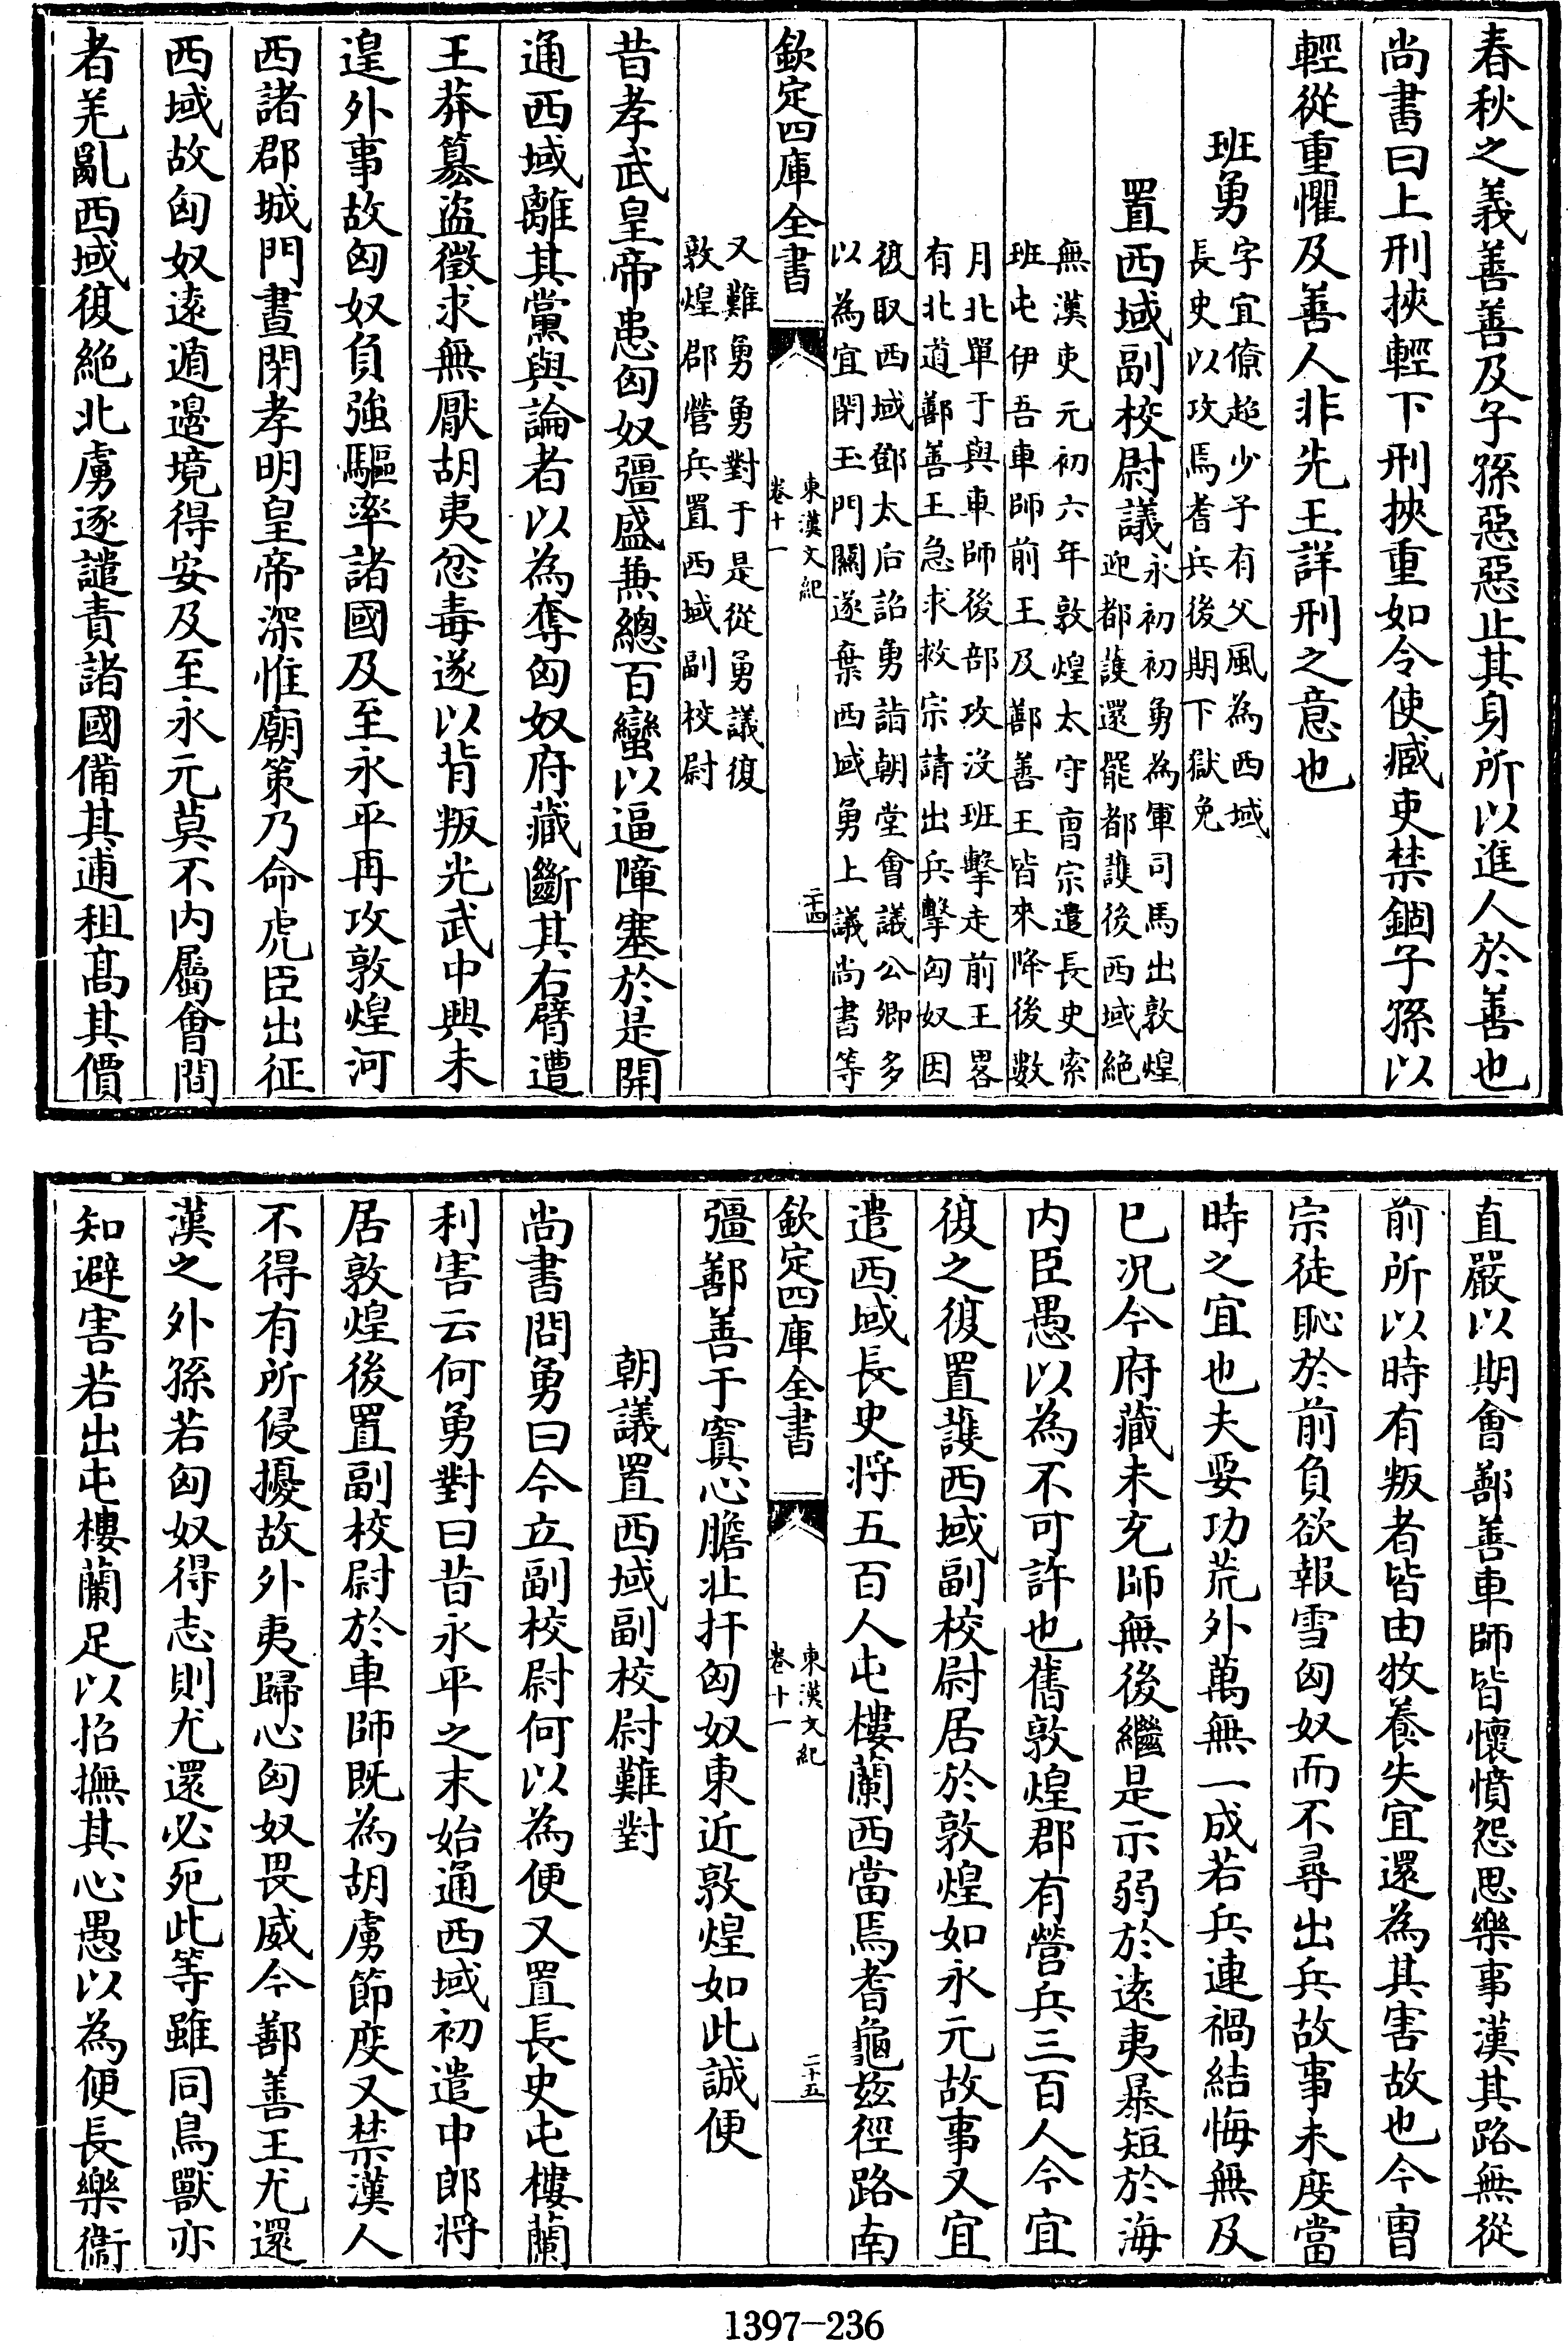 春秋之義善善及子孫惡惡止其身所以進人於善也
尚書曰上刑挾輕下刑挾重如令使臧吏禁錮子孫以
輕從重懼及善人非先王詳刑之意也
班勇字宜僚超少子有父風為西域
長史以攻焉耆兵後期下獄免
置西域副校尉議永初初勇為軍司馬出敦煌
迎都護還罷都護後西域絶
無漢吏元初六年敦煌太守曺宗遣長史索
班屯伊吾車師前王及鄯善王皆來降後數
月北單于與車師後部攻沒班擊走前王畧
有北道鄯善王急求救宗請出兵擊匈奴因
復取西域鄧太后詔勇詣朝堂會議公卿多
以為宜閉玉門關遂棄西域勇上議尚書等
欽定四庫全書
東漢文紀
卷十一
二十四
又難勇勇對于是從勇議復
敦煌郡營兵置西域副校尉
昔孝武皇帝患匈奴彊盛兼總百蠻以逼障塞於是開
通西域離其黨與論者以為奪匈奴府藏斷其右臂遭
王莽簒盜徵求無厭胡夷忿毒遂以背叛光武中興未
遑外事故匈奴負強驅率諸國及至永平再攻敦煌河
西諸郡城門晝閉孝明皇帝深惟廟策乃命虎臣出征
西域故匈奴遠遁邊境得安及至永元莫不内屬會間
者羌亂西域復絶北虜逐譴責諸國備其逋租髙其價
直嚴以期會鄯善車師皆懷憤怨思樂事漢其路無從
前所以時有叛者皆由牧養失宜還為其害故也今曺
宗徒恥於前負欲報雪匈奴而不尋出兵故事未度當
時之宜也夫要功荒外萬無一成若兵連禍結悔無及
已况今府藏未充師無後繼是示弱於遠夷暴短於海
内臣愚以為不可許也舊敦煌郡有營兵三百人今宜
復之復置護西域副校尉居於敦煌如永元故事又宜
遣西域長史將五百人屯樓蘭西當焉耆龜兹徑路南
欽定四庫全書
東漢文紀
卷十一
二十五
彊鄯善于窴心膽北扞匈奴東近敦煌如此誠便
朝議置西域副校尉難對
尚書問勇曰今立副校尉何以為便又置長史屯樓蘭
利害云何勇對曰昔永平之末始通西域初遣中郎將
居敦煌後置副校尉於車師既為胡虜節度又禁漢人
不得有所侵擾故外夷歸心匈奴畏威今鄯善王尤還
漢之外孫若匈奴得志則尤還必死此等雖同鳥獸亦
知避害若出屯樓蘭足以招撫其心愚以為便長樂衞
1397—236